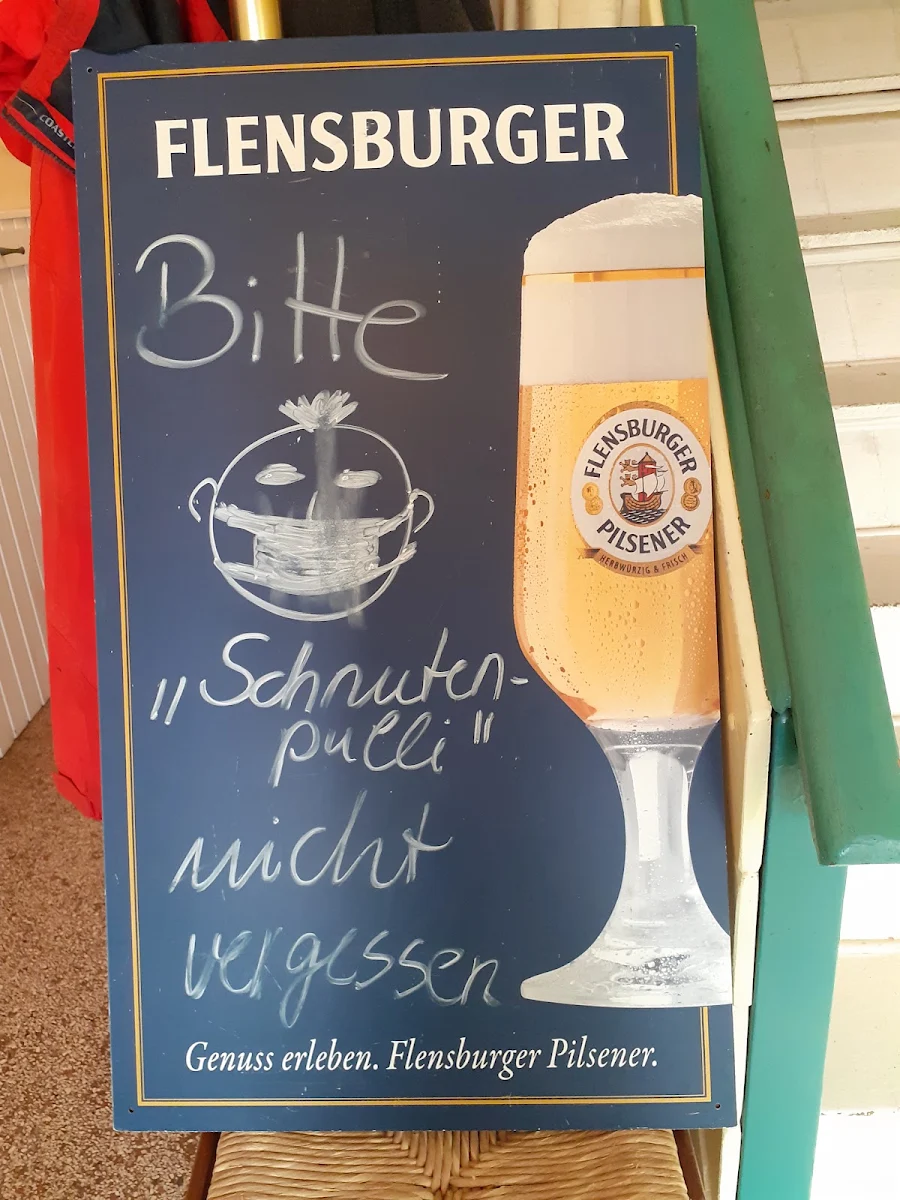 COAST
FLENSBURGER
Bitte
FLENSBURGER
PILSENER
HERBWÜRZIG & FRISCH
„Schnuten-
pulli"
nicht
vergessen
Genuss erleben. Flensburger Pilsener.